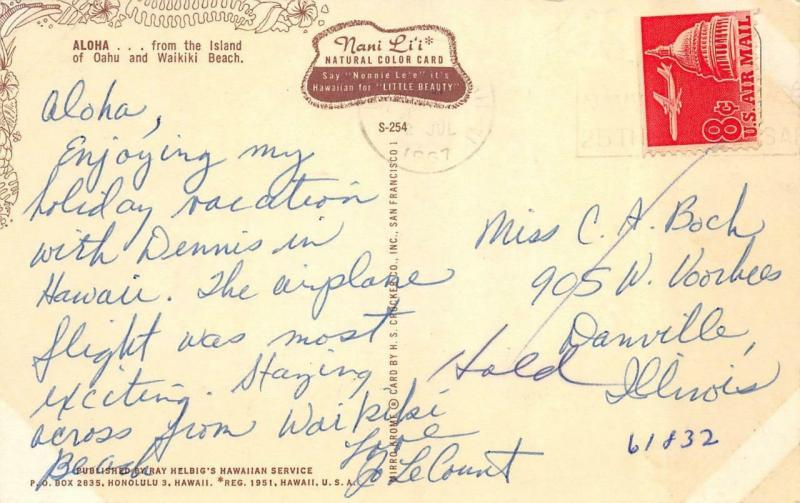 ALOHA . . . from the Island
of Oahu and Waikiki Beach.
Nani Li'i*
NATURAL COLOR CARD
Say "Nonnie Le'e" it's
Hawaiian for "LITTLE BEAUTY"
S-254
JUL
1967
25TH
8¢
U.S. AIR MAIL
Aloha,
Enjoying my
holiday vacation
with Dennis in
Hawaii. The airplane
flight was most
exciting. Staying
across from Waikiki
Beach
Love
Jo LeCount
Miss C. A. Boch
905 W. Voorhees
Danville,
Illinois
61832
Hold
MIRRO-KROME ® CARD BY H. S. CROCKER CO., INC., SAN FRANCISCO 1
PUBLISHED BY RAY HELBIG'S HAWAIIAN SERVICE
P. O. BOX 2835, HONOLULU 3, HAWAII. *REG. 1951, HAWAII, U. S. A.